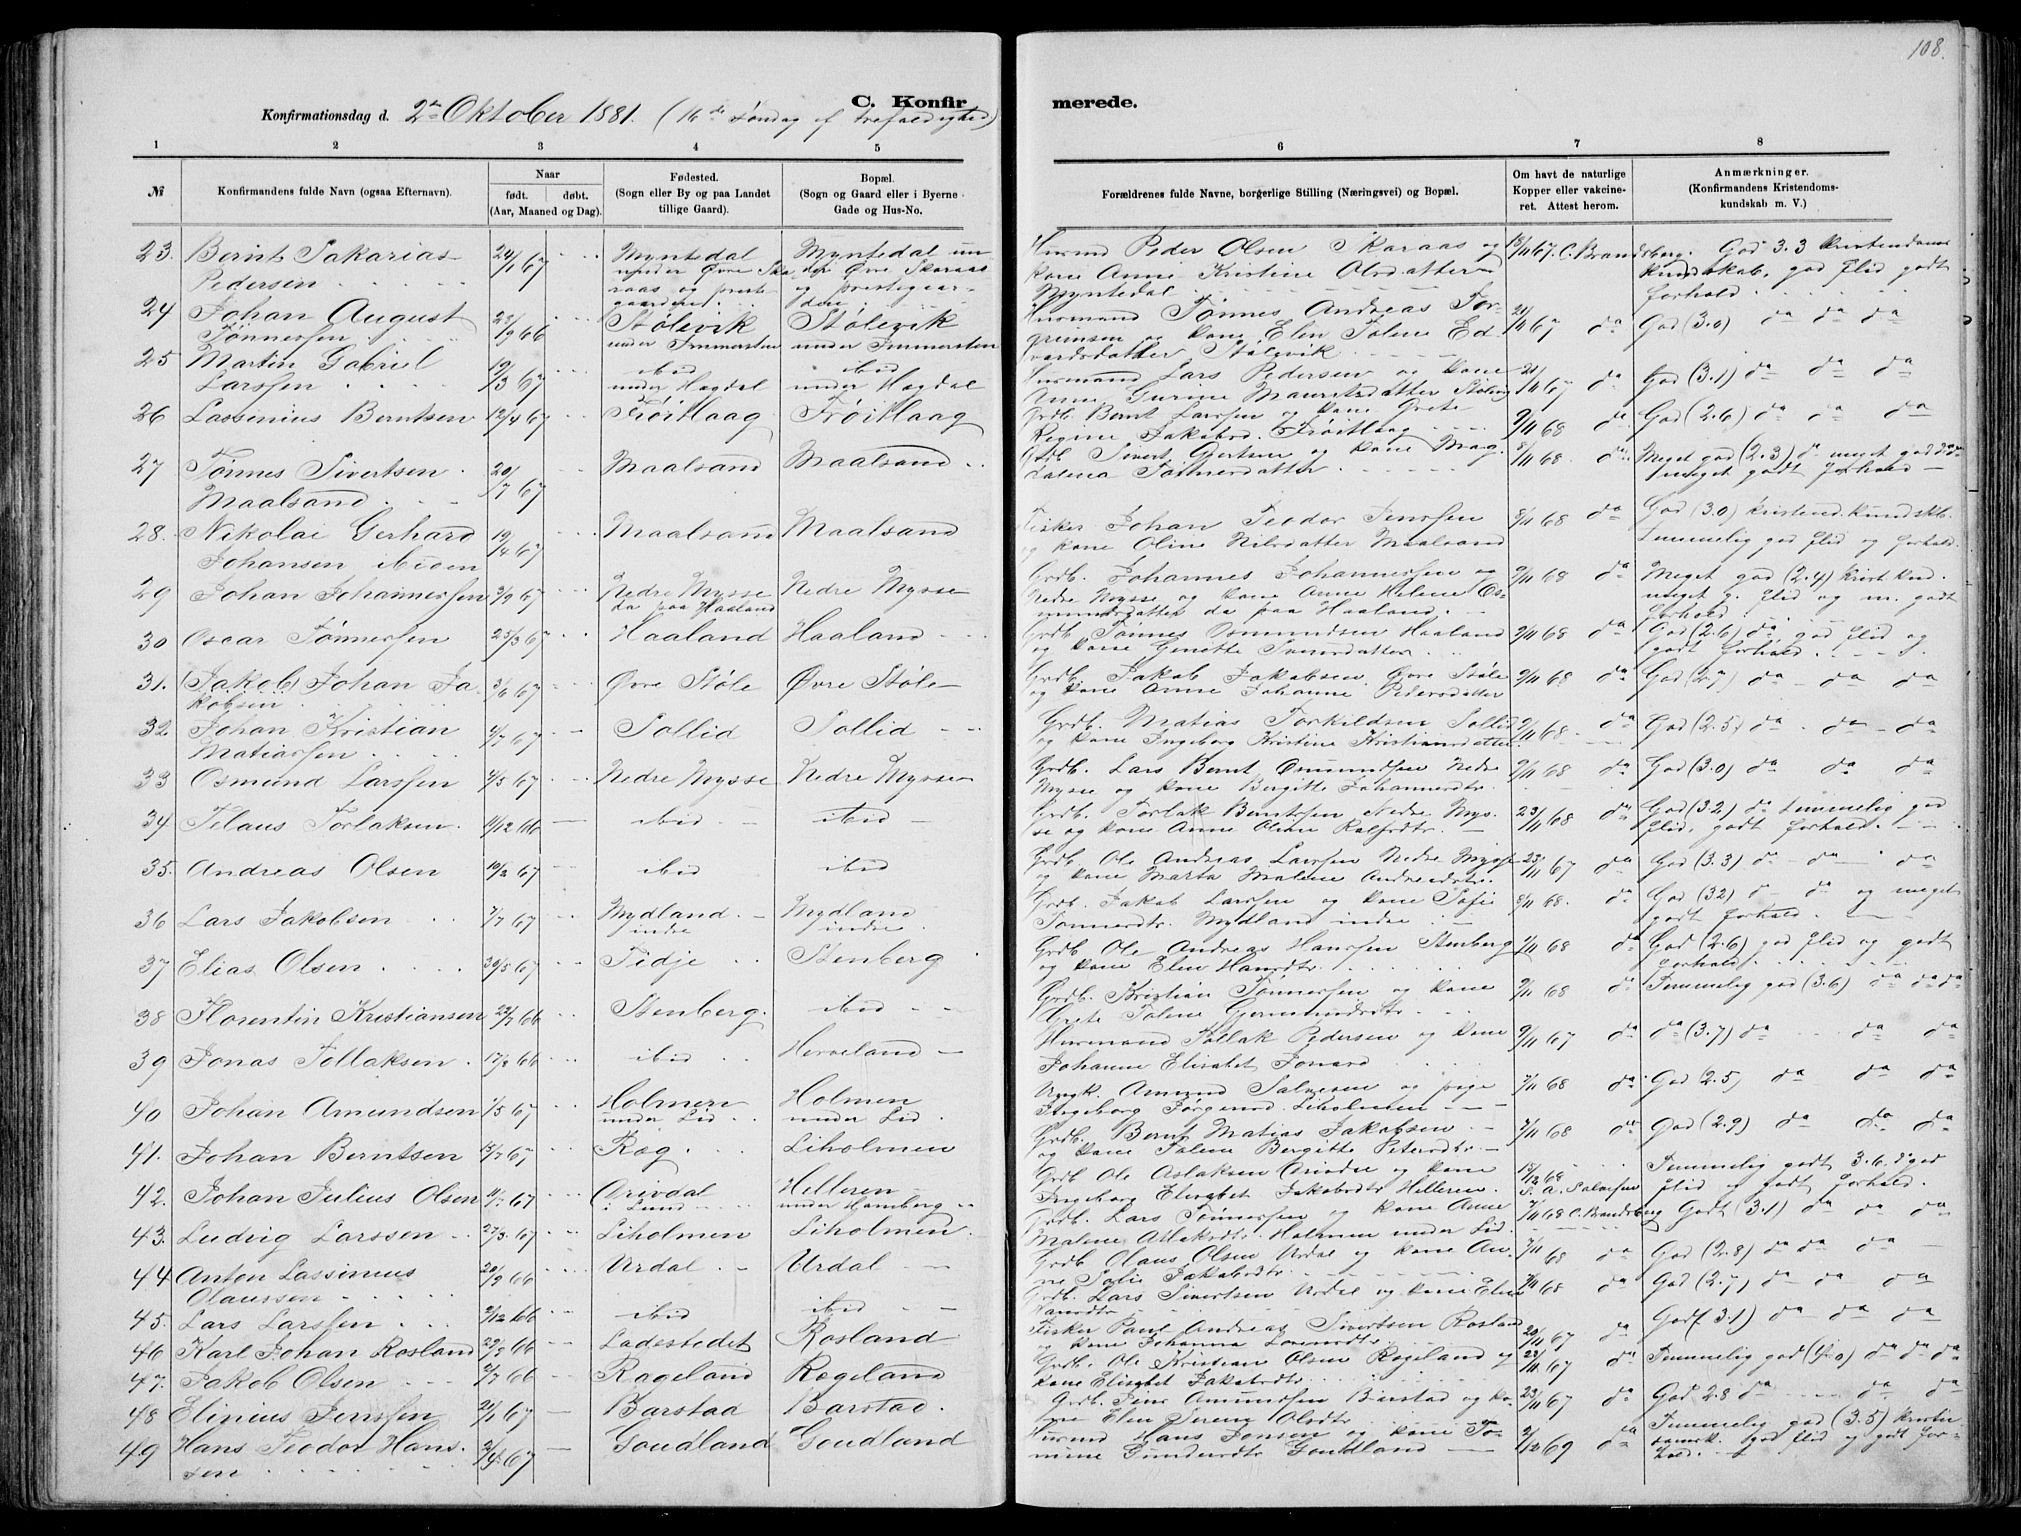 108.
C. Konfirmerede.
Konfirmationsdag d. 2den Oktober 1881. (16de Søndag ef Trefoldighed)
1 2 3 4 5 6 7 8
№ Konfirmandens fulde Navn (ogsaa Efternavn). Naar født. døbt. (Aar, Maaned og Dag). Fødested. (Sogn eller By og paa Landet tillige Gaard). Bopæl. (Sogn og Gaard eller i Byerne Gade og Hus-No.
Forældrenes fulde Navne, borgerlige Stilling (Næringsvei) og Bopæl. Om havt de naturlige Kopper eller vakcineret. Attest herom. Anmærkninger. (Konfirmandens Kristendomskundskab m. V.)
23. Bernt Sakarias Pedersen 24/1 67 Myntedal under Øvre Skaraas og prestegaarden Myntedal under Øvre Skaraas og prestegaarden Husmd Peder Olsen Skaraas og kone Anne Kristine Olsdatter Myntedal 13/11 67. C. Brandsberg. God 3.3 kristendomskundskab, god flid godt forhold
24 Johan August Tønnessen 23/9 66 Stølevik under Immersten Stølevik under Immersten Husmand Tønnes Andreas Torgrimsen og kone Elen Talene Edvardsdatter Stølevik 21/11 67 da God (3.0) da da da
25 Martin Gabriel Larssen 19/3 67 ibid under Hægdal ibid under Hægdal Husmand Lars Pedersen og kone Anne Gurine Mauritsdatter Stølevig 21/11 67 da God (3.1) da da da
26 Lassenius Berntsen 12/4 67 Frøitlaag Frøitlaag Grdb. Bernt Larssen og kone Grete Regine Jakobsd. Frøitlaag 9/11 68 da God (2.6) da da da
27 Tønnes Sivertsen Maalsand 20/7 67 Maalsand Maalsand Grdb. Sivert Gertsen og kone Magdalena Tønnesdatter 8/11 68. da Meget god (2.3) da meget god flid meget godt forhold
28. Nikolai Gerhard Johansen ibiden 19/4 67 Maalsand Maalsand Fisker Johan Teodor Jenssen og kone Oline Nilsdatter Maalsand 8/11 68 da God (3.0) kristend.kundskb. Temmelig god flid og forhold.
29 Johan Johannessen 3/9 67 Nedre Mysse da paa Haaland Nedre Mysse Grdb. Johannes Johannessen og Nedre Mysse og kone Anne Helene Osmundsdatter da paa Haaland. 9/11 68 da Meget god (2.4) krist.knd. meget g. flid og m. godt forhold
30 Oscar Tønnessen 25/3 67 Haaland Haaland Grdb. Tønnes Osmundsen Haaland og kone Genette Svensdatter 9/11 68 da God (2.6) da god flid og godt forhold.
31. (Jakob) Johan Jakobsen 3/6 67 Øvre Støle Øvre Støle Grdb. Jakob Jakobsen Øvre Støle og kone Anne Johanne Pedersdatter 9/11 68 da God (2.7) da da da
32. Johan Kristian Matiassen 4/7 67 Sollid Sollid Grdb. Matias Torkildsen Sollid og kone Ingeborg Kristine Kristiansdatter 9/11 68. da God (2.5) da da da
33 Osmund Larssen 4/5 67 Nedre Mysse Nedre Mysse Grdb. Lars Bernt Osmundsen Nedre Mysse og kone Bergitte Johannesdtr. 9/11 68 da God (3.0) da da da
34 Telaus Torlaksen. 11/12 66 ibid ibid Grdb. Torlak Berntsen Nedre Mysse og kone Anne Oline Ralfsdtr. 23/11 68 da God (3.2) da temmelig god flid, godt forhold.
35. Andreas Olsen 10/2 67 ibid ibid Grdb. Ole Andreas Larssen Nedre Mysse og kone Marta Malene Andreasdtr. 23/11 67 da God (3.3) da da da
36 Lars Jakobsen 7/7 67 Mydland indre Mydland indre. Grdb. Jakob Larssen og kone Sofie Tønnesdtr. Mydland indre 8/11 68. da God (3.2) da da og meget godt forhold.
37 Elias Olsen 30/5 67 Tidje Stenberg Grdb. Ole Andreas Hanssen Stenberg og kone Elen Hansdtr. 7/11 68 da God (2.6) god flid og godt forhold.
38 Florentin Kristiansen 22/7 66 Stenberg. ibid Grdb. Kristian Tønnessen og kone Grete Talene Germundsdtr 9/11 68 da Temmelig god (3.6) da da da
39 Jonas Tollaksen. 17/2 66 ibid Herveland Husmand Tollak Pedersen og kone Johanne Elisabet Jonasd. 9/11 67 da da (3.7) da da da
40 Johan Amundsen 1/5 67 Holmen under Lid Holmen under Lid Ungk. Amund Salvesen og pige Ingeborg Jørgensd. Liholmen 7/11 68 da God (2.5) da da da
41. Johan Berntsen 15/7 67 Røg Liholmen Grdb. Bernt Matias Jakobsen og kone Talene Bergitte Petersdtr. 7/11 68 da God (2.9) da da da
42. Johan Julius Olsen 11/7 67 Orivdal i Lund Helleren under Hamberg Grdb Ole Aslaksen og kone Ingeborg Elisabet Jakobsdtr Helleren. 18/12 68 S. A. Salvesen Temmelig godt 3.6. da god flid og godt forhold.
43. Ludvig Larssen 27/3 67 Liholmen Liholmen. Grdb. Lars Tønnessen og kone Anne Malene Aslaksdtr. Holmen under Lid. 7/11 68 C. Brandsberg Godt (3.1) da da da
44 Anton Lassinius Olaussen 20/9 66 Urdal Urdal Grdb Olaus Olsen Urdal og kone Anne Sofie Jakobsdtr. 7/11 68 da God (2.8) da da
45. Lars Larssen 2/12 66 ibid ibid Grdb. Lars Sivertsen Urdal og kone Elen Hansdtr 7/11 68 da God (2.7) da da da
46 Karl Johan Rosland 29/8 66 Ladestedet Rosland Fisker Paul Andreas Sivertsen Rosland og kone Johanna Larensdtr. 20/11 67 da God (3.1) da da da
47. Jakob Olsen 2/7 66 Rageland Rægeland Grdb. Ole Kristian Olsen Rageland og kone Elisabet Jakobsdtr. 23/11 67 da Temmelig god (4.0) da da da
48 Elinius Jenssen 21/1 67 Barstad Barstad. Grdb. Jens Amundsen Barstad og kone Elen Serene Olsdtr 23/11 67 da God 2.8 da da da
49 Hans Teodor Hanssen 2/4 67 Goudland Goudland Husmd Hans Jonsen og kone Tomine Gundersdtr Goudland 2/12 69 da Temmelig god (3.5) kristendomsk. God flid og godt forhold.